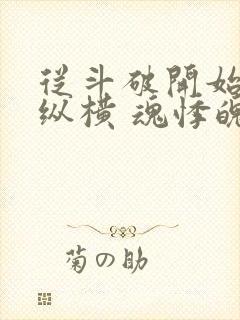 從斗破開始
纵橫 魂悸魄
菊の助